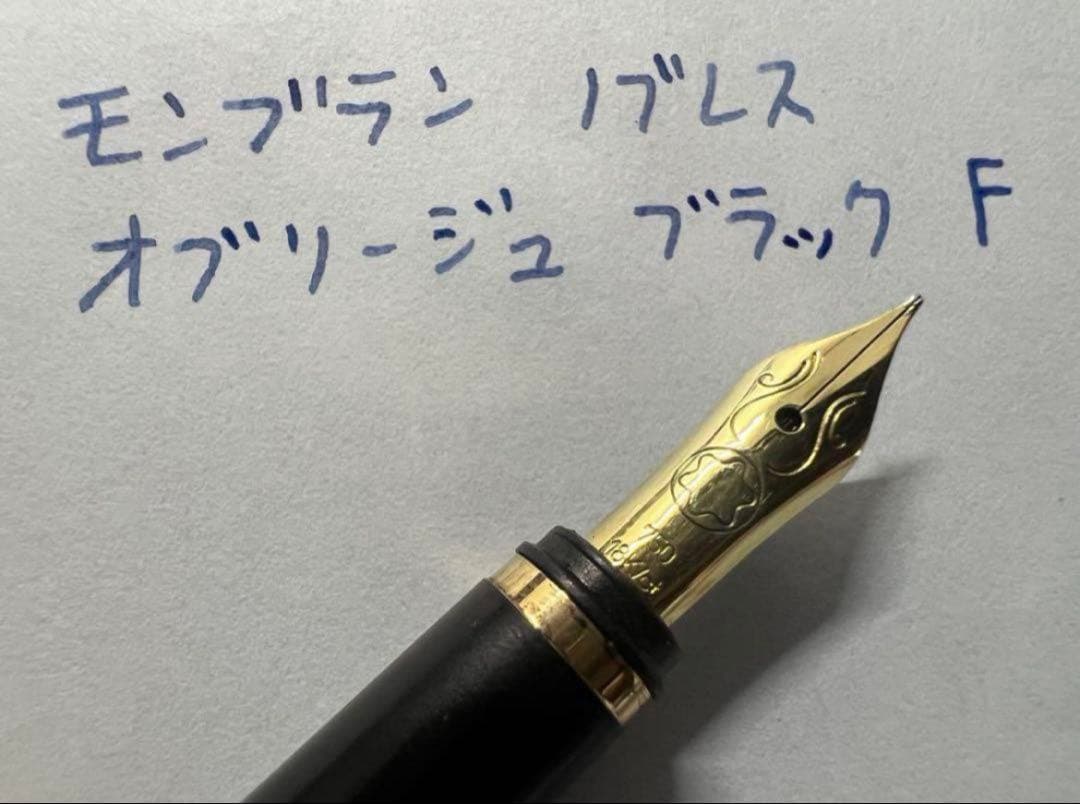 モンブラン ノブレス
オブリージュ ブラック F
750
18K/ct